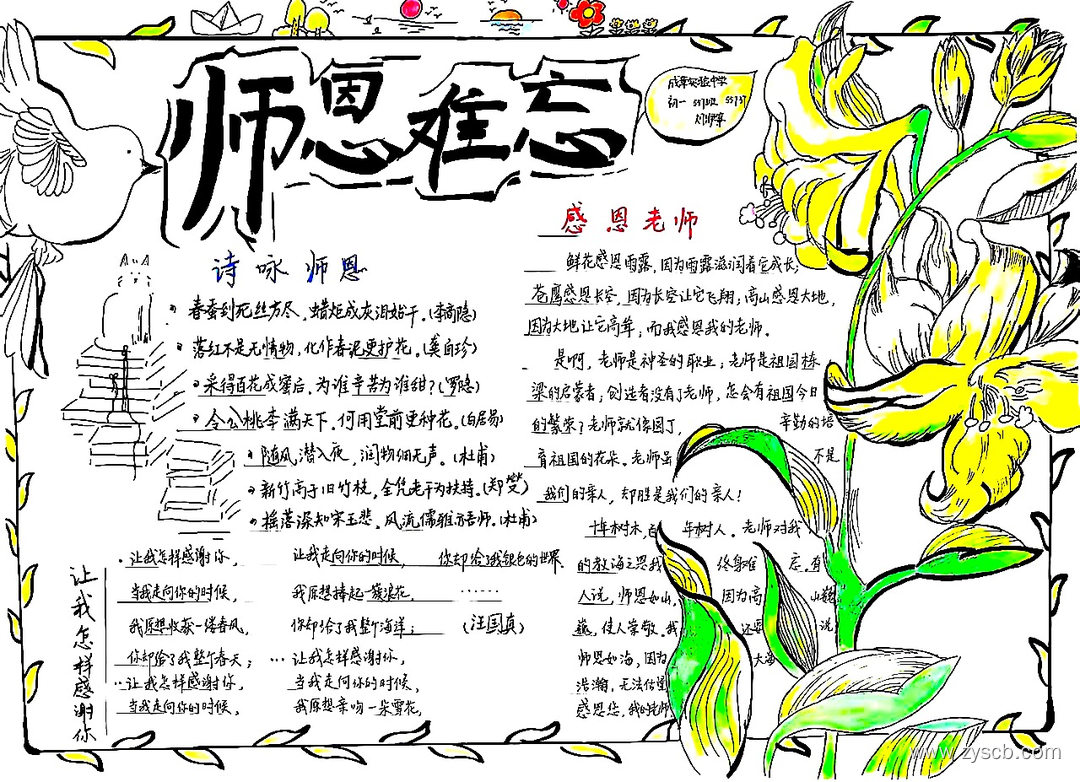 师恩难忘
初一
诗咏师恩
春蚕到死丝方尽,蜡炬成灰泪始干。(李商隐)
落红不是无情物,化作春泥更护花。(龚自珍)
采得百花成蜜后,为谁辛苦为谁甜?(罗隐)
令公桃李满天下,何用堂前更种花。(白居易)
随风潜入夜,润物细无声。(杜甫)
新竹高于旧竹枝,全凭老干为扶持。(郑燮)
摇落深知宋玉悲,风流儒雅亦吾师。(杜甫)
感恩老师
鲜花感恩雨露,因为雨露滋润着它成长;
苍鹰感恩长空,因为长空让它飞翔;高山感恩大地,
因为大地让它高耸;而我感恩我的老师。
是啊,老师是神圣的职业;老师是祖国栋
梁的启蒙者,创造者没有了老师,怎会有祖国今日
的繁荣?老师就像园丁, 辛勤的培
育祖国的花朵。老师虽 不是
我们的亲人,却胜是我们的亲人!
年树木,百 年树人。老师对我
的教诲之恩我 终身
人说,师恩如山, 因为高 山巍
巍,使人崇敬,我 还要 说
师恩如海,因为 大海
浩瀚,无法估量
感恩您,我的老师
让我怎样感谢你
让我怎样感谢你,
当我走向你的时候,
我原想收获一缕春风,
你却给了我整个春天;
让我怎样感谢你,
当我走向你的时候,
让我走向你的时候,
我原想捧起一簇浪花,
你却给了我整个海洋;
…让我怎样感谢你,
当我走向你的时候,
我原想亲吻一朵雪花,
你却给了我银色的世界
……
(汪国真)
www.zyscb.com